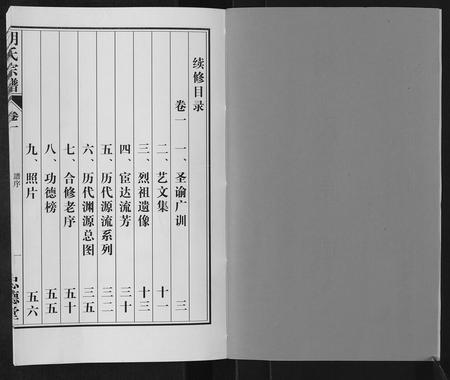 续修目录
卷一
一、圣谕广训 三
二、艺文集 十一
三、烈祖遗像 十三
四、宦达流芳 三十
五、历代源流系列 三二
六、历代渊源总图 三五
七、合修老序 五十
八、功德榜 五五
九、照片 五六
氏宗谱
卷一
谱序
一
德堂